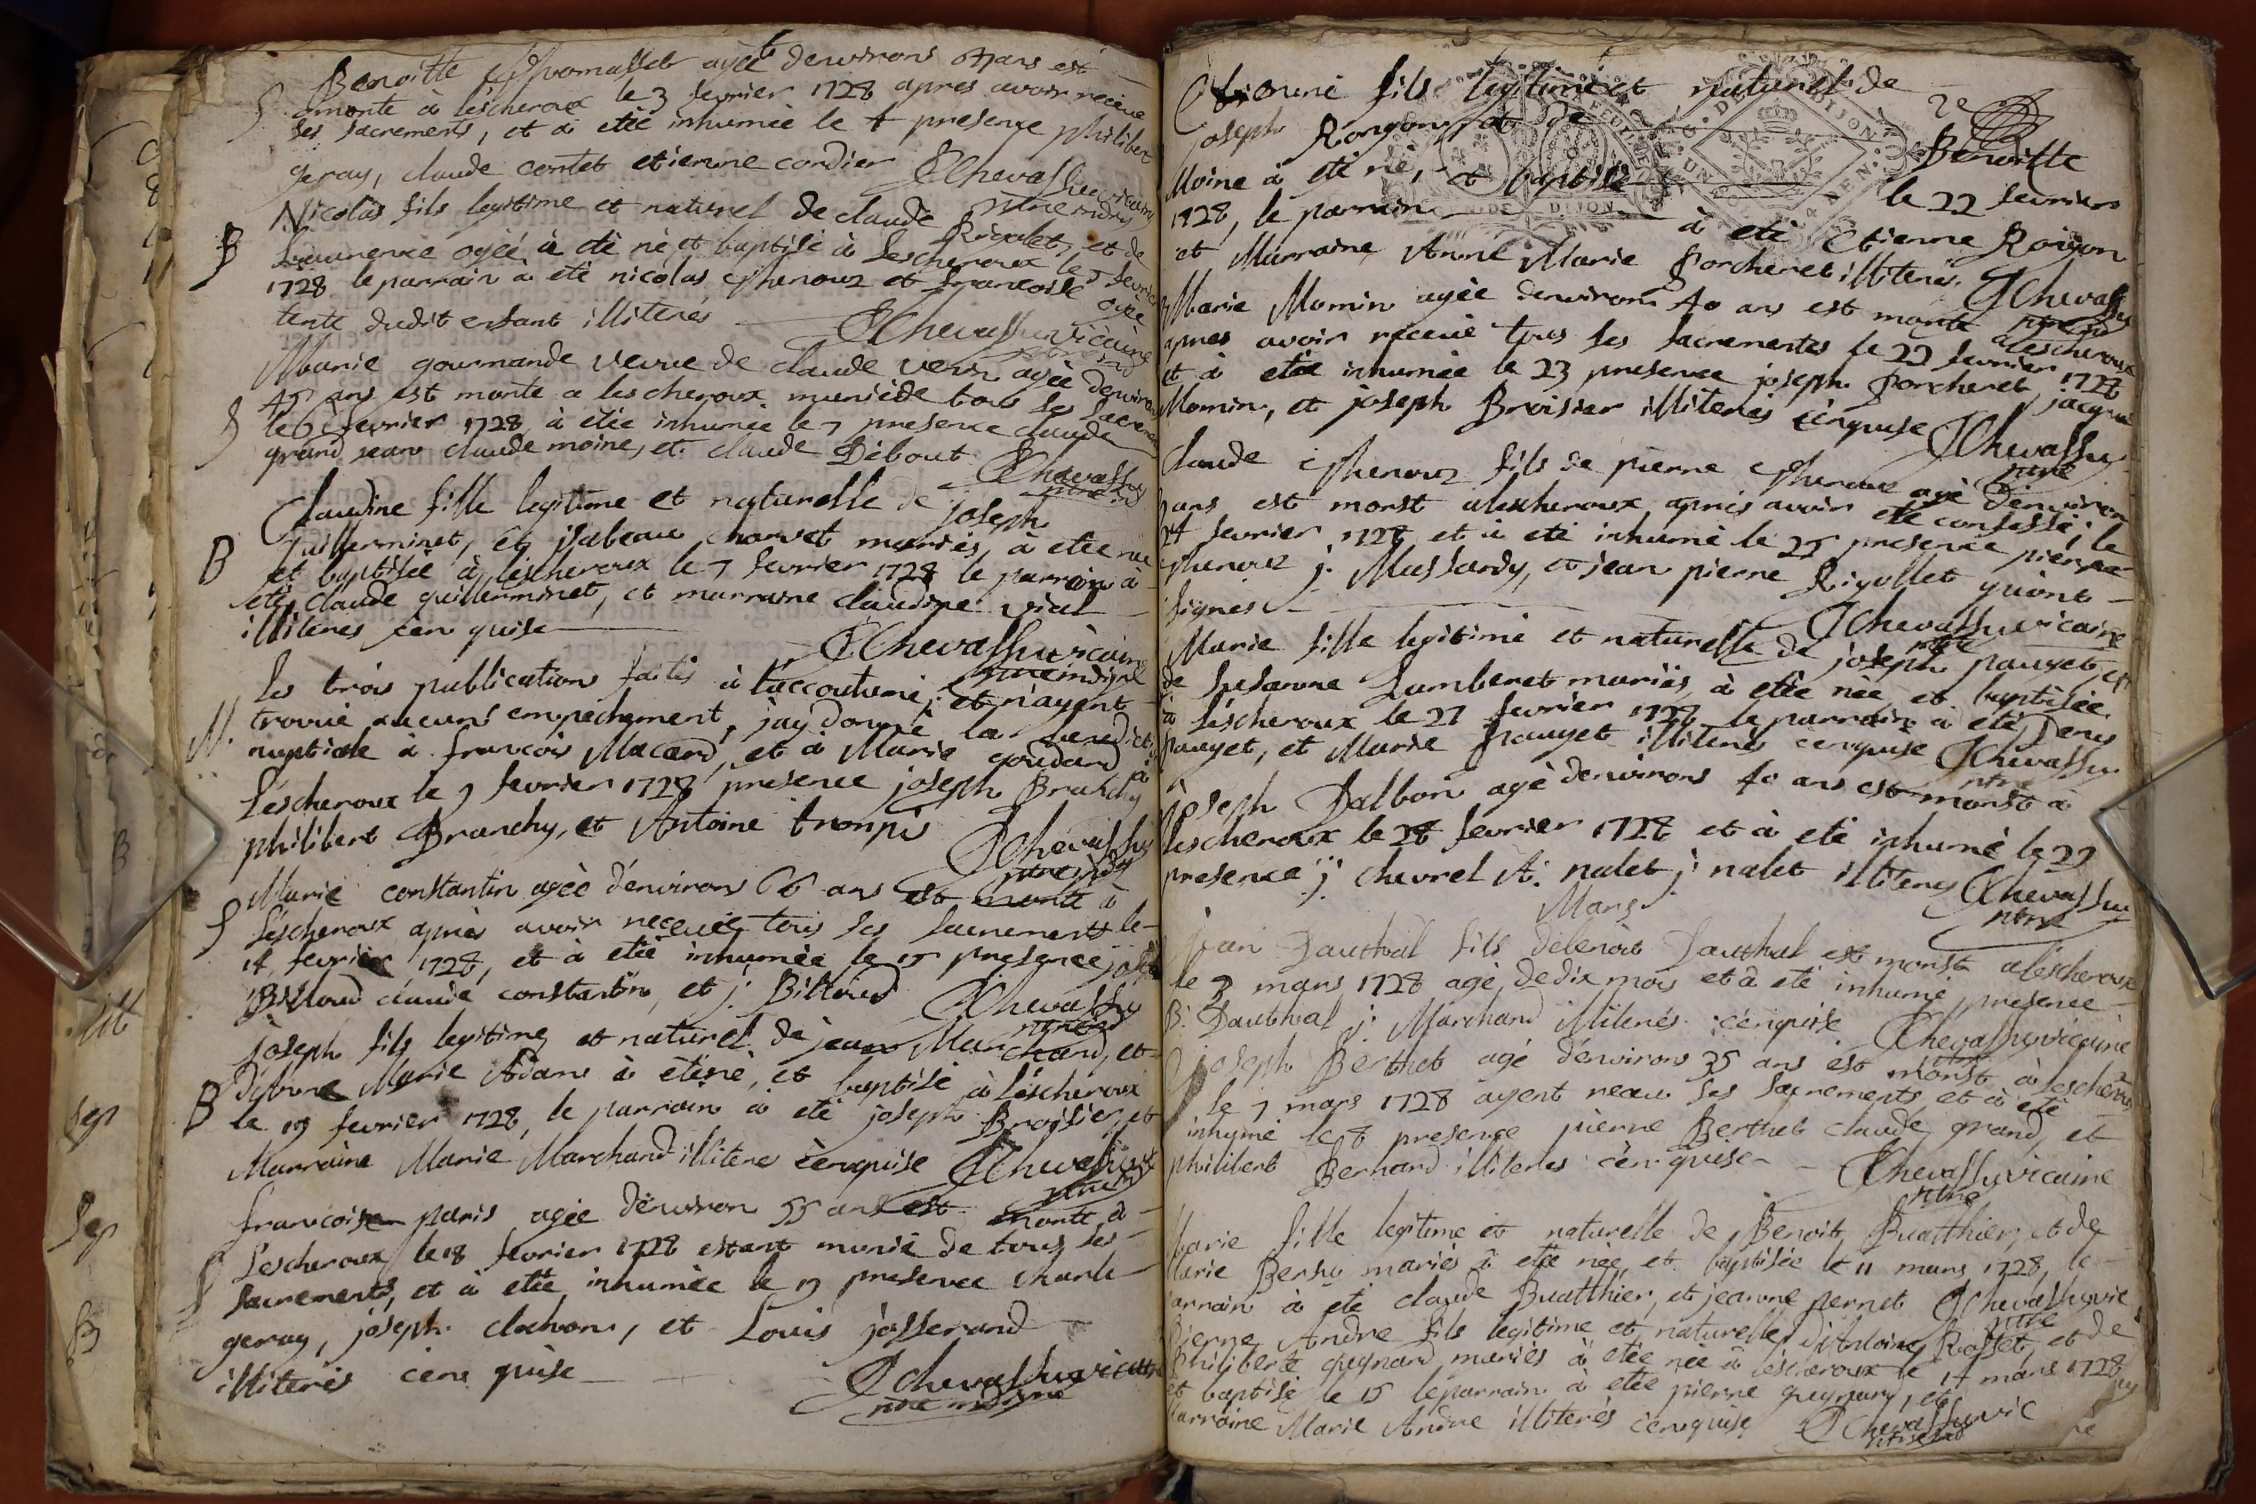 Benoitte agée denvirons ans est
S monte à lescheroux le 3 fevrier 1728 apres avoir receue
ses sacrements, et à etée inhumée le 4 presence philibert
geray, claude contet etienne cordier Chevassu vicaire
ptre indig
Nicolas fils legitime et naturel de claude Rigolet, et de
B Laurence ogée à eté né et baptisé à Lescheroux le 5 fevrier
1728 le parrain à eté nicolas et francoise ogée
tente dudit enfant illiterés Chevassu vicaire
Marie gourmande veuve de claude agée denviron
45 ans est monte a lescheroux muniéde tous ses sacrements
S le 6 fevrier 1728, à etée inhumée le 7 presence claude
grand jean claude moine, et claude Debout Chevassu
ptre ind
Claudine fille legitime et naturelle de joseph
B guillerminet, et jsabeau charvet mariés, à etée née
et baptisée à lescheroux le 7 fevrier 1728 le parrain à
eté claude guillerminet, et marraine claudine vial
illiteres cen quise Chevassu vicaire
ptre indigne
les trois publications faites à laccoutumé, et n'ayent
M. trouvé aucuns empechement, jay donné la
nuptiale à francois Macard, et à Marie goudard à
Lescheroux le 9 fevrier 1728 presence joseph Branchy
philibert Branchy, et Antoine Chevassu
ptre indig
Marie constantin agée d'environs 66 ans est monte à
S Lescheroux après avoir receue tous ses sacrements le
14 fevrier 1728, et à etée inhumée le 15 presence
Billoud claude constantin, et j: Billoud Chevassu
ptre ind
joseph fils legitime et naturel de jean Marchand, et
B d'etiene Marie Adam à éténé, et baptisé à léscheroux
le fevrier 1728, le parrain à eté joseph Broisier, et
Marraine Marie Marchand illitere cènquise Chevassu
ptre
francoise paris agée d'environ 55 ans est monte à
S Lescheroux le 18 fevrier 1728 estant munie de tous ses
sacrements, et à etée inhumée le 19 presence charle
geray, joseph clachon, et Louis josserand
illiterés cènquise Chevassu vicaire
ptre indigne
Etienne fils legitime et naturel de
joseph Rongon, et de Benoitte
Moine à eté né, et baptisé le 22 fevriers
1728, le parrain à eté Etienne Roigon
et Marraine Anne Marie Porcheret illiterés Chevassu
Marie Momin agée denvirons 40 ans est monte à lescheroux
apres avoir receue tous ses sacrementes le 22 fevrier 1728
et à etée inhumée le 23 presence joseph Porcheret, jacque
Momin, et joseph Broisier illiterés cènquise Chevassu
ptre
Claude fils de pierre agé denviron
ans est morst alescheroux aprés avoir eté confessé, le
24 fevrier 1728 et à eté inhumé le 25 presence pierre
j: Massardy, et jean pierre Rigollet quiont
signes Chevassu vicaire
ptre
Marie fille legitime et naturelle de joseph pauget, et
de Susanne Lamberet mariés, à etée née et baptisée
à Léscheroux le 27 fevrier 1728 le parrain à eté Denis
pauget, et Marie pauget illiterés cènquise Chevassu
ptre
joseph Dalbon agé denvirons 40 ans est morst à
Lescheroux le 28 fevrier 1728 et à eté inhumé le 29
presence j: chevrel A: nalet j: nalet illiteres Chevassu
ptre
Mars
jean Dauthal fils debenoit Dauthal est morst alescheroux
le 3 mars 1728 agé dedix mois et à eté inhumé, presence
B: Dauthal j: Marchand illiterés cènquise Chevassu vicaire
ptre
joseph Berthet agé d'environs 35 ans est morst à lescheroux
le 7 mars 1728 ayent receu ses sacrements et à eté
inhumé le 8 presence pierre Berthet claude grand, et
philibert Bernard illiterés cènquise Chevassu vicaire
ptre
Marie fille legitime et naturelle de Benoit Buatthier, et de
Marie mariés à etée née, et baptisée le 11 mars 1728, le
parrain à eté claude Buatthier, et jeanne pernet Chevassu vic
ptre
Pierre André fils legitime et naturelle d'Antoine Rosset, et de
Philiberte guynard mariés à etée née à léscheroux le 14 mars 1728
et baptisé le 15 leparrain à etée pierre guynard, et
Marraine Marie Andre illiterés cènquise Chevassu vic